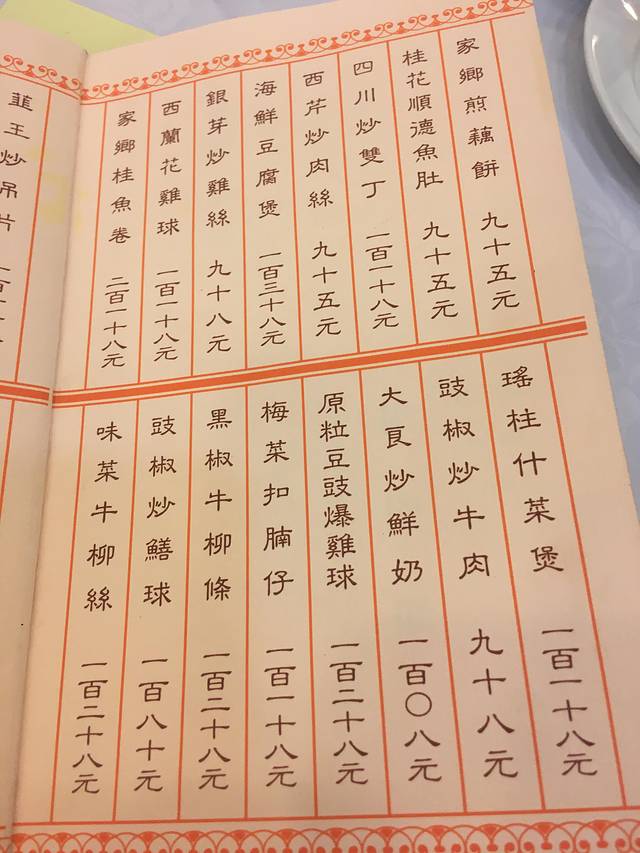 家鄉煎藕餅 九十五元
桂花順德魚肚 九十五元
四川炒雙丁 一百一十八元
西芹炒肉絲 九十五元
海鮮豆腐煲 一百三十八元
銀芽炒雞絲 九十八元
西蘭花雞球 一百一十八元
家鄉桂魚卷 二百一十八元
瑤柱什菜煲 一百一十八元
豉椒炒牛肉 九十八元
大良炒鮮奶 一百〇八元
原粒豆豉爆雞球 一百二十八元
梅菜扣腩仔 一百一十八元
黑椒牛柳條 一百二十八元
豉椒炒鱔球 一百八十元
味菜牛柳絲 一百二十八元
韮王炒吊片